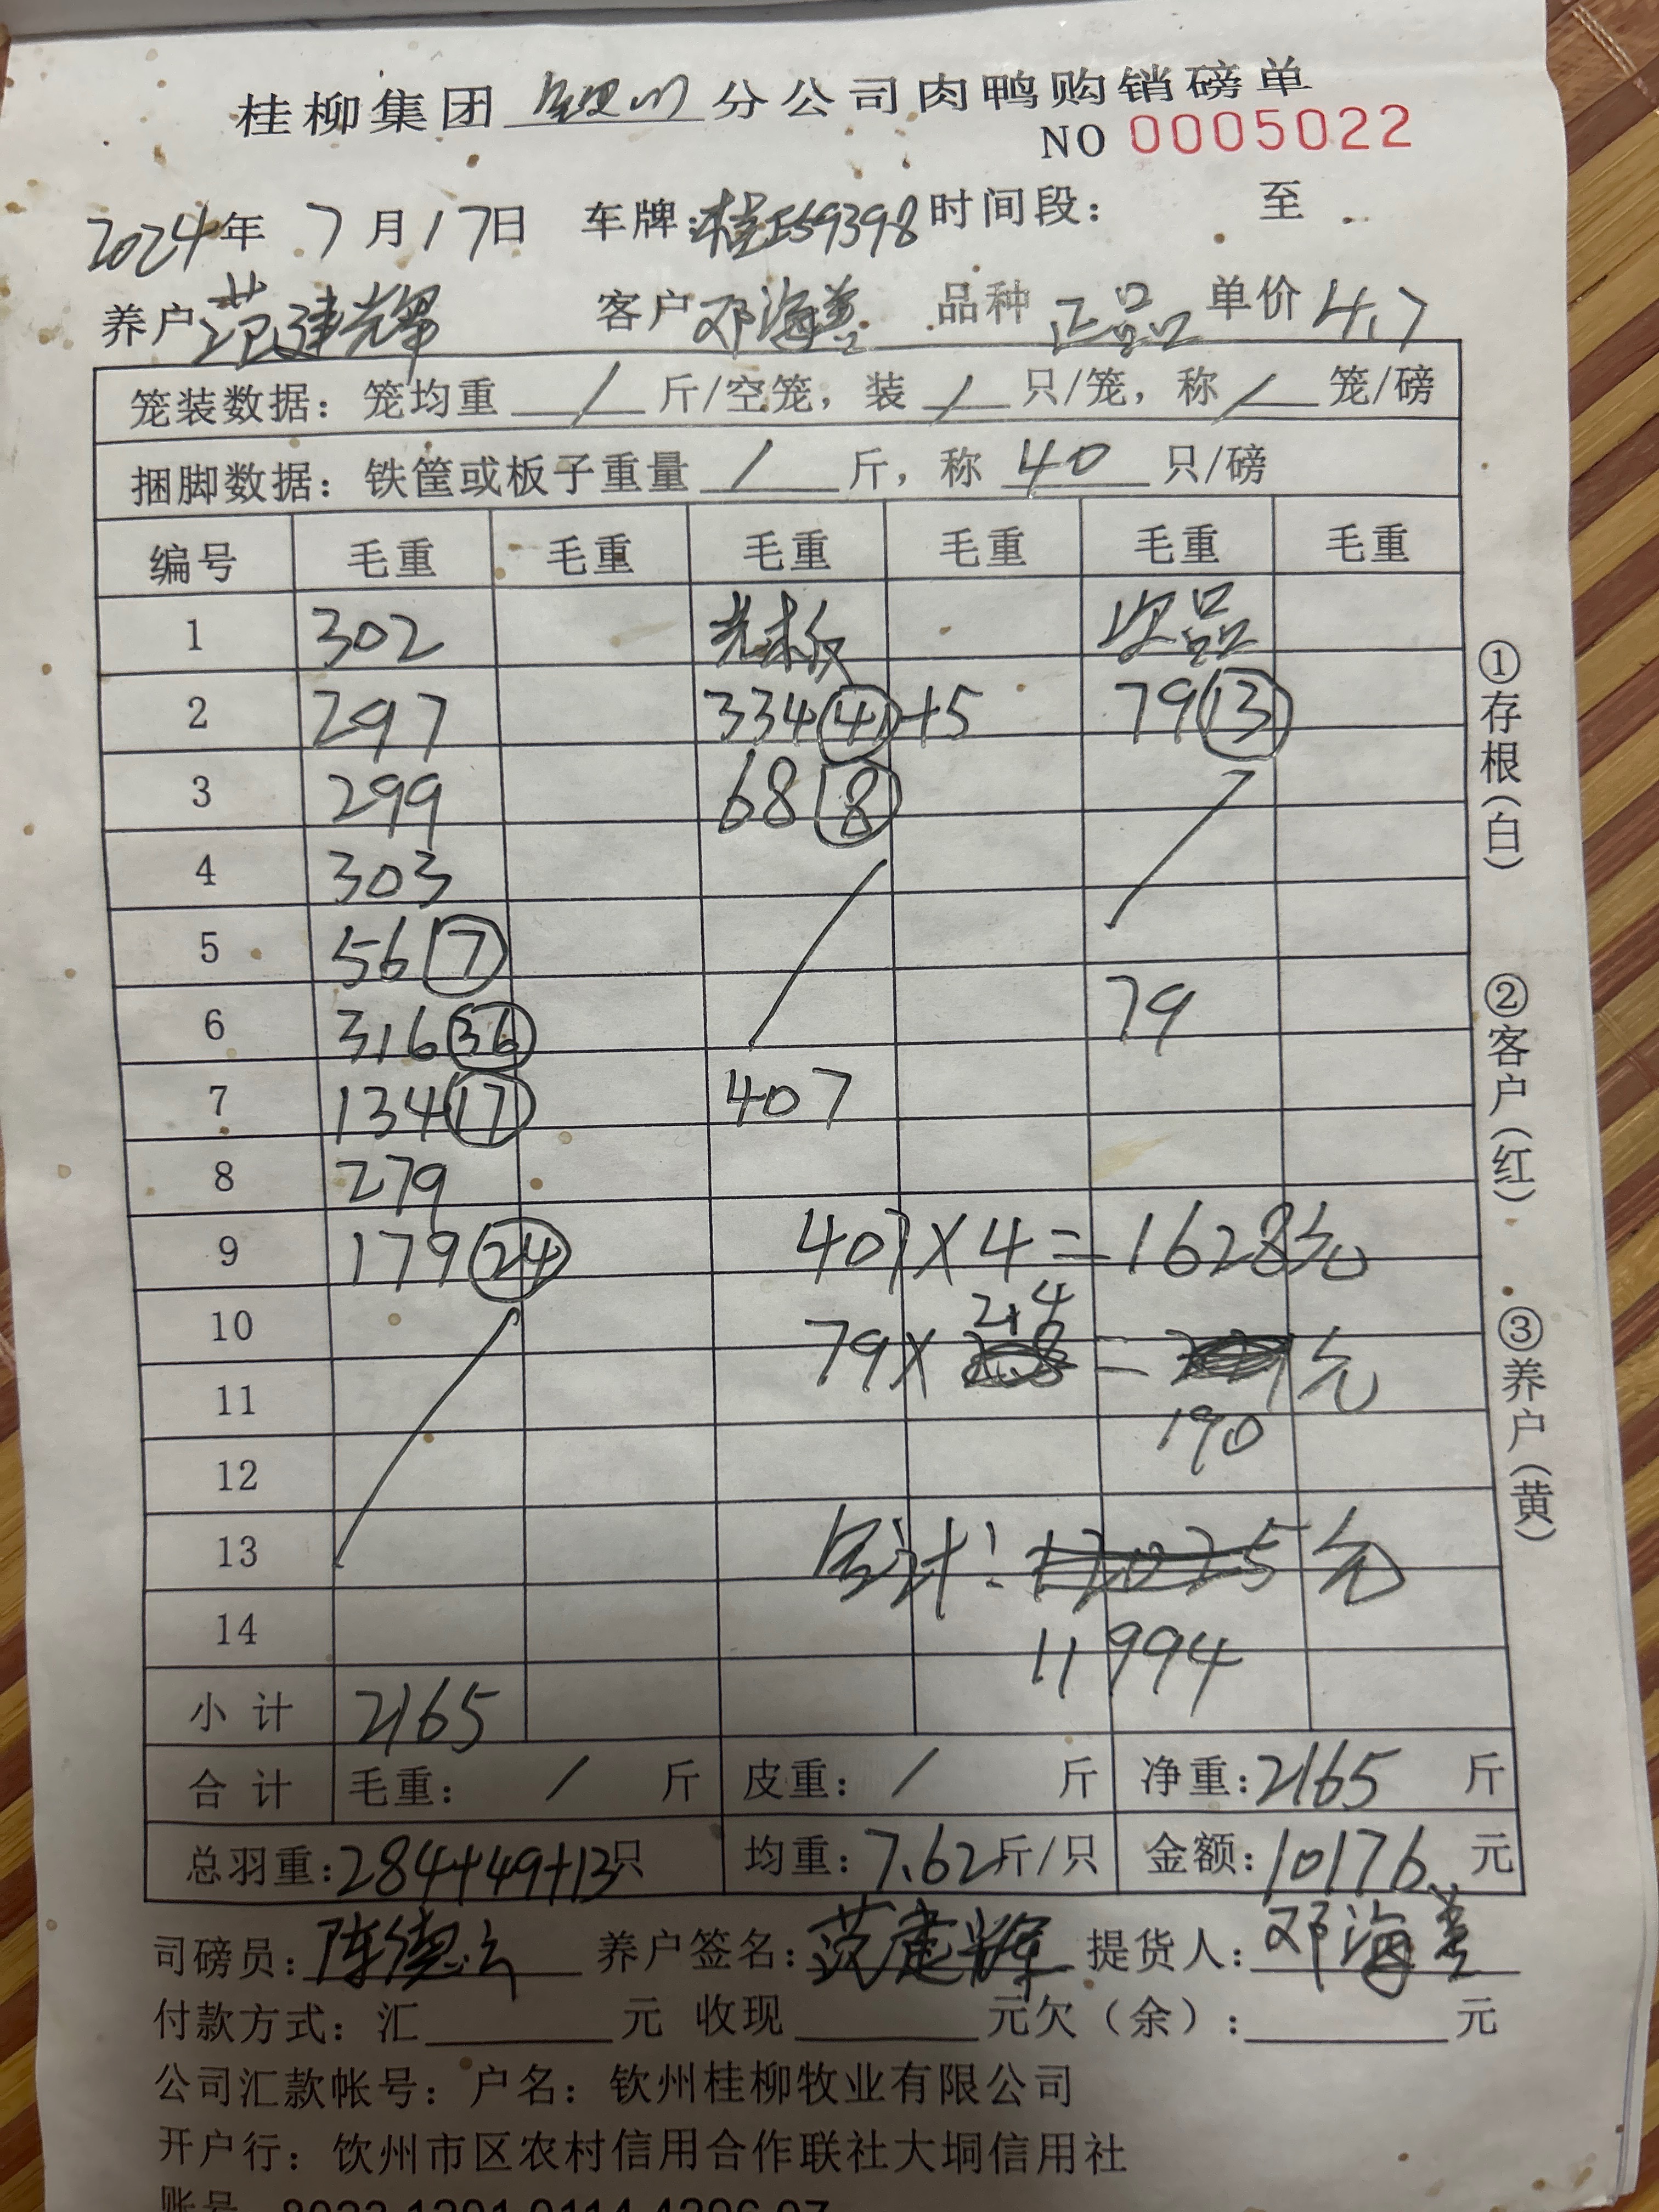 桂柳集团 钦州 分公司肉鸭购销磅单
NO 0005022
2024年 7月17日 车牌:桂E59398 时间段: 至
养户 范建辉 客户 邓海 品种 正品 单价 4.7
笼装数据: 笼均重 / 斤/空笼, 装 / 只/笼, 称 / 笼/磅
捆脚数据: 铁筐或板子重量 / 斤, 称 40 只/磅
编号 毛重 毛重 毛重 毛重 毛重 毛重
1 302 次品
2 297 334 41 +5 79 13
3 299 68 8
4 303
5 56 7
6 316 36 79
7 134 17 407
8 279
9 179 24 407×4=1628元
10 2.4
11 79× = 元
12 190
13 合计: 元
14 11994
小计 2165
合计 毛重: / 斤 皮重: / 斤 净重:2165 斤
总羽重:284+49+13只 均重:7.62斤/只 金额:10176 元
司磅员:陈德云 养户签名:范建辉 提货人:邓海
付款方式: 汇 元 收现 元欠(余): 元
公司汇款帐号: 户名: 钦州桂柳牧业有限公司
开户行: 钦州市区农村信用合作联社大垌信用社
账号
①存根(白)
②客户(红)
③养户(黄)